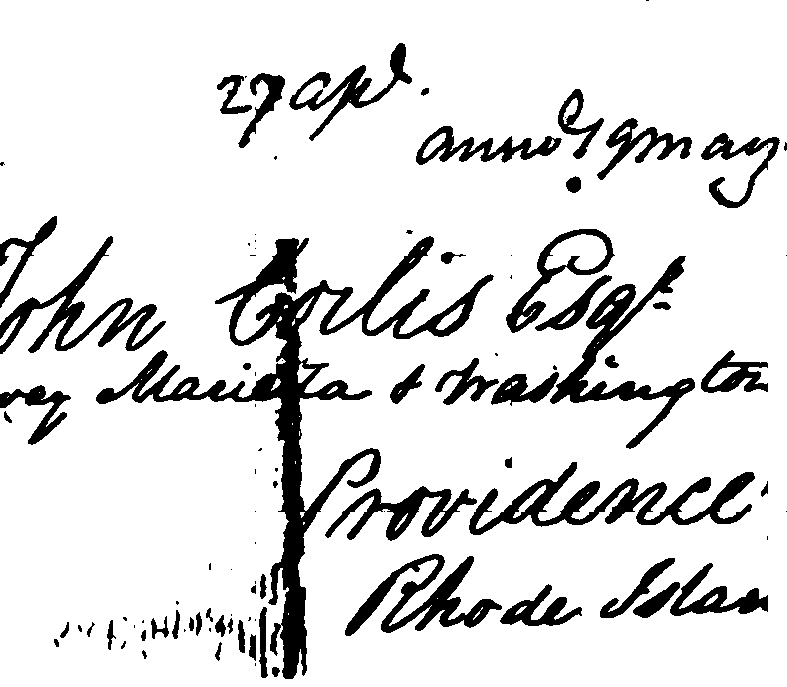 27 apl.
annod 9 may
John Corlis Esqr.
way Marietta & Washington
Providence
Rhode Islan